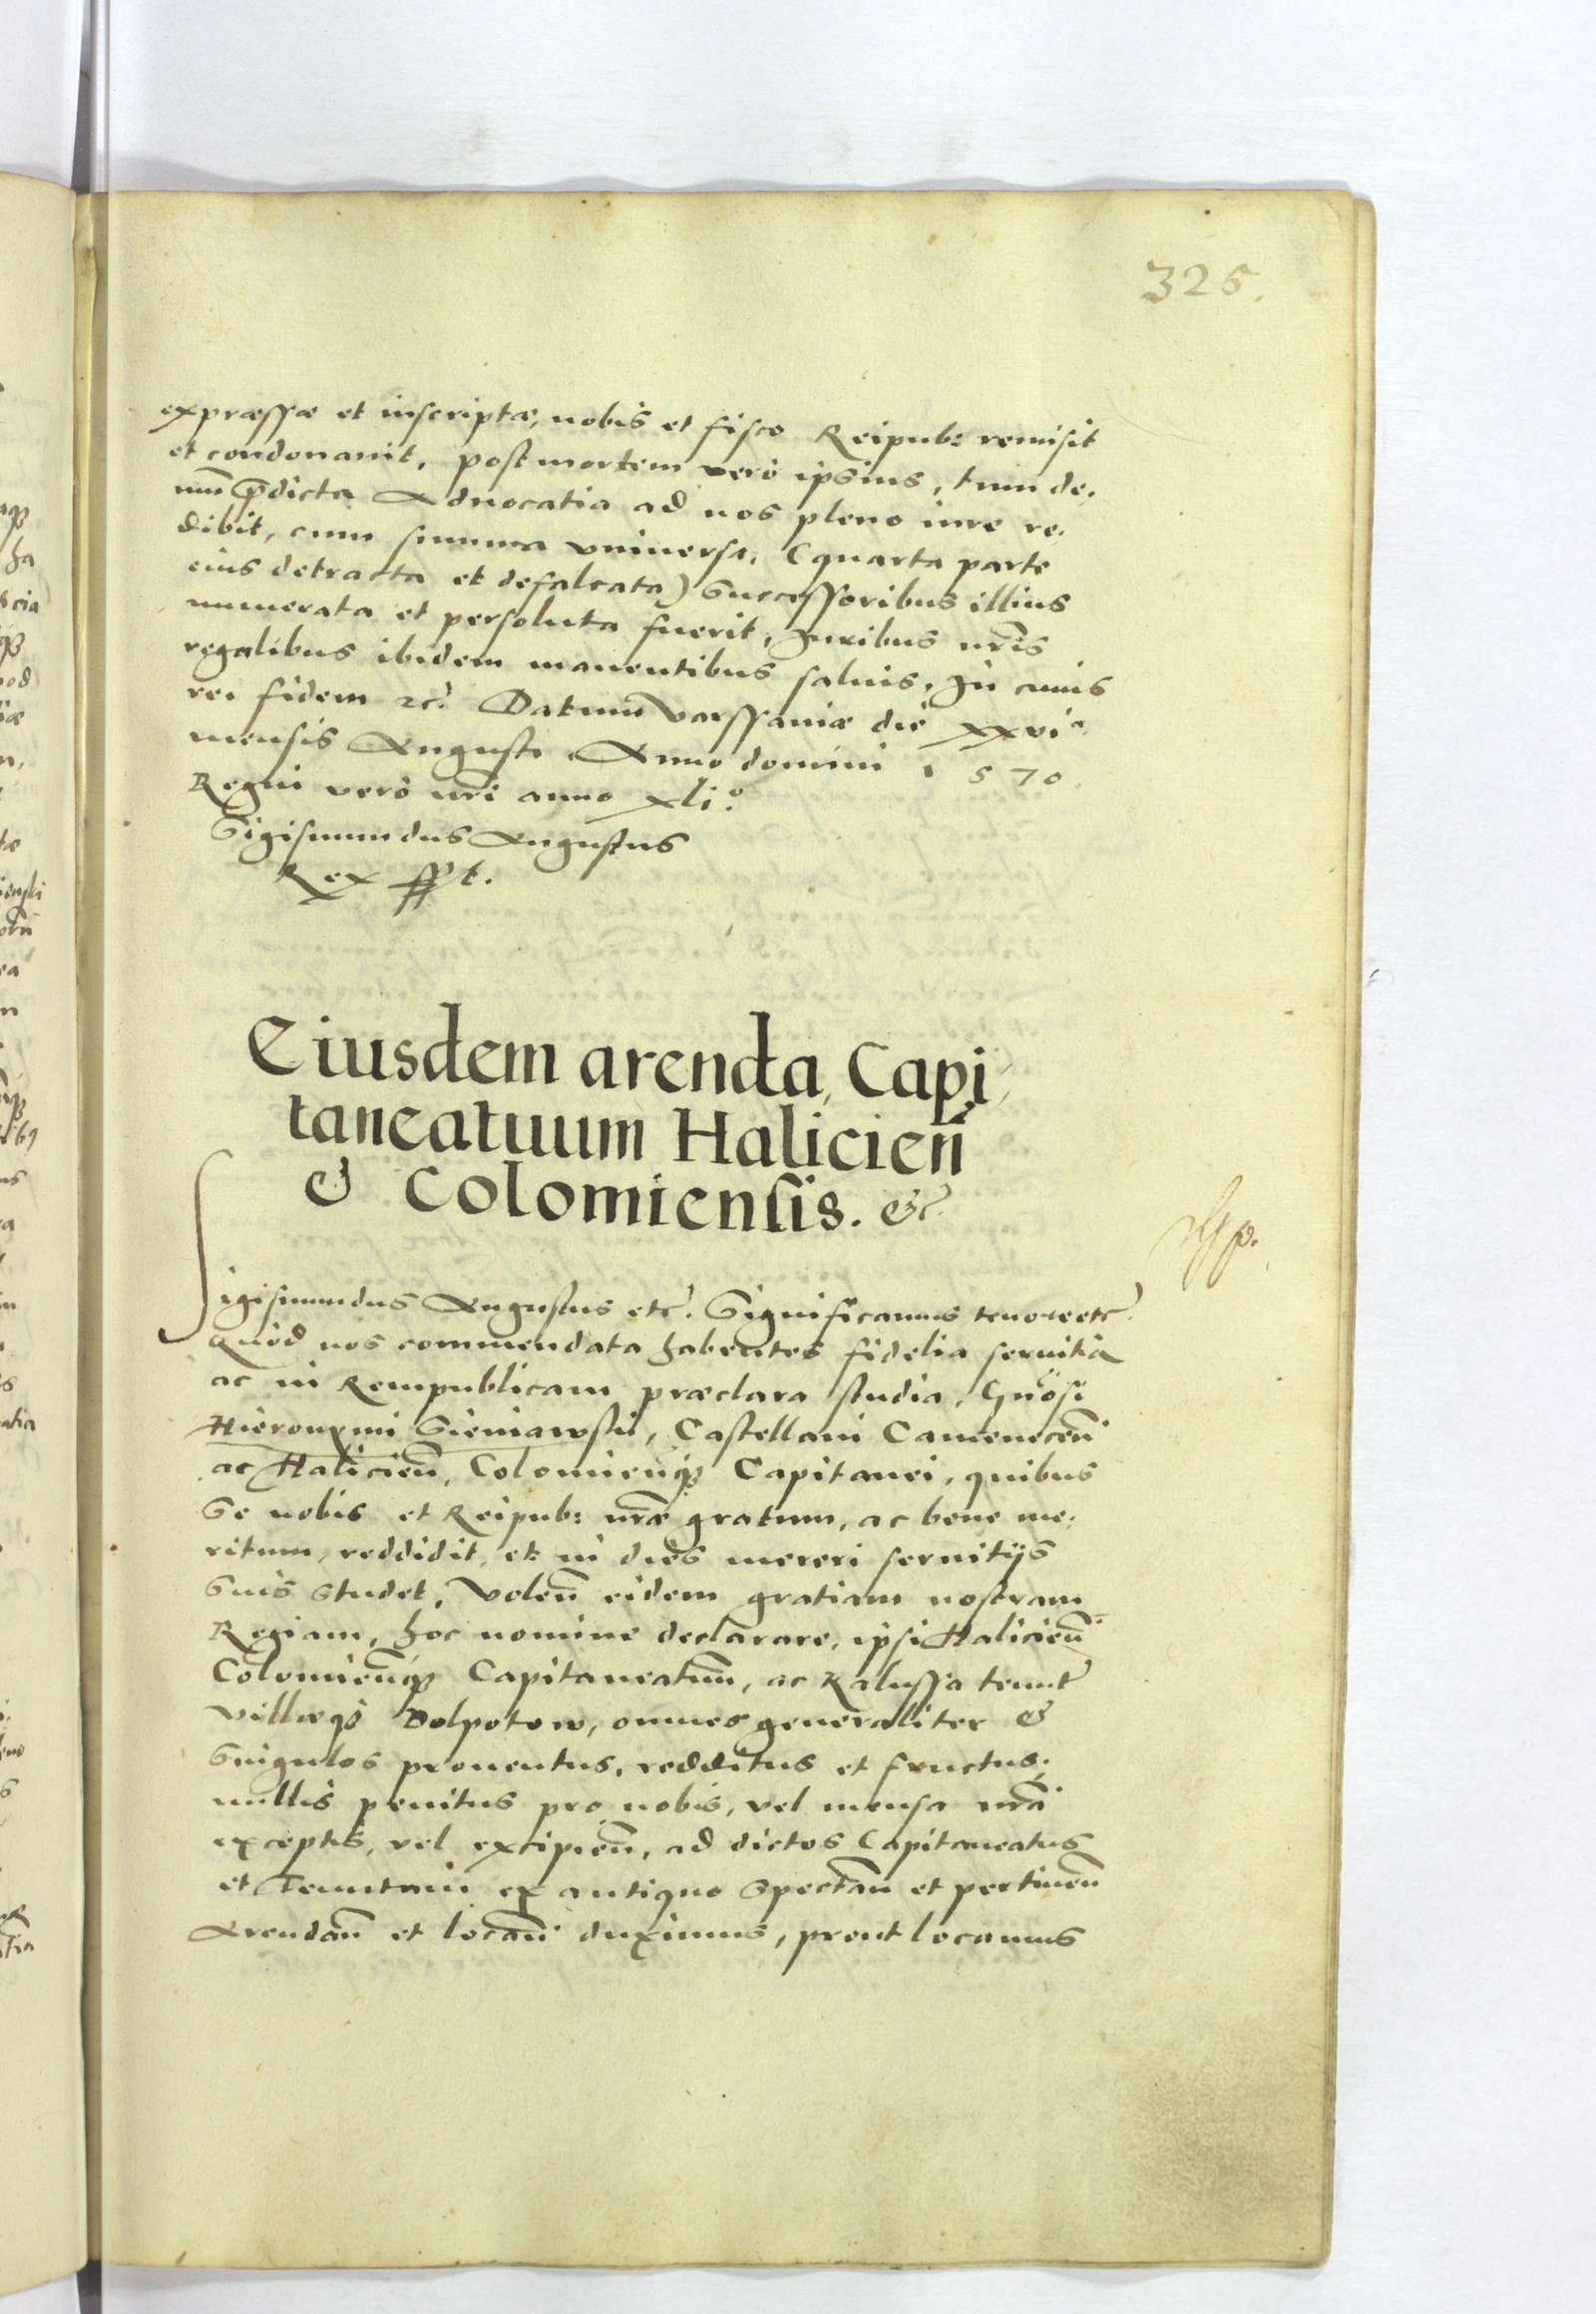 325.
expræssæ et inscriptæ, nobis et fisco Reipub: remisit
et condonauit, post mortem verò ipsius, tum de,
mū p̄dicta Aduocatia ad nos pleno iure re,
dibit, cum summa vniuersa, (quarta parte
eius detracta et defalcata) Successoribus illius
numerata et persoluta fuerit, Juribus nr̄is
regalibus ibidem manentibus saluis, In cuius
rei fidem etc. Datum Varssauiæ die xxvi.a
mensis Augusti Anno domini 1570.
Regni verò nr̄i anno xli.o
Sigismundus Augustus
Rex sst.
Eiusdem arenda, Capi,
taneatuum Halicien̄
& Colomiensis. &c.
Sigismundus Augustus etc. Significamus tenore etc.
Quòd nos commendata habentes fidelia seruitia
ac in Rempublicam præclara studia, Gn̄osi
Hieronymi Sieniawski, Castellani Camenecen̄
ac Halicien̄, Colomien̄q3 Capitanei, quibus
Se nobis et Reipub: nr̄æ gratum, ac bene me,
ritum, reddidit, et in dies mereri seruitijs
Suis Studet, Volen̄ eidem gratiam nostram
Regiam, hoc nomine declarare, ipsi Halicien̄
Colomien̄q3 Capitaneatum, ac Kalussa tenut
Villæq3 Dolpotow, omnes generaliter &
Singulos prouentus, redditus et fructus,
nullis penitus pro nobis, vel mensa nr̄a
exceptis, vel excipien̄, ad dictos Capitaneatus
et Tenutam ex antiquo Spectan̄ et pertinen̄
Arendan̄ et locan̄ duximus, prout locamus